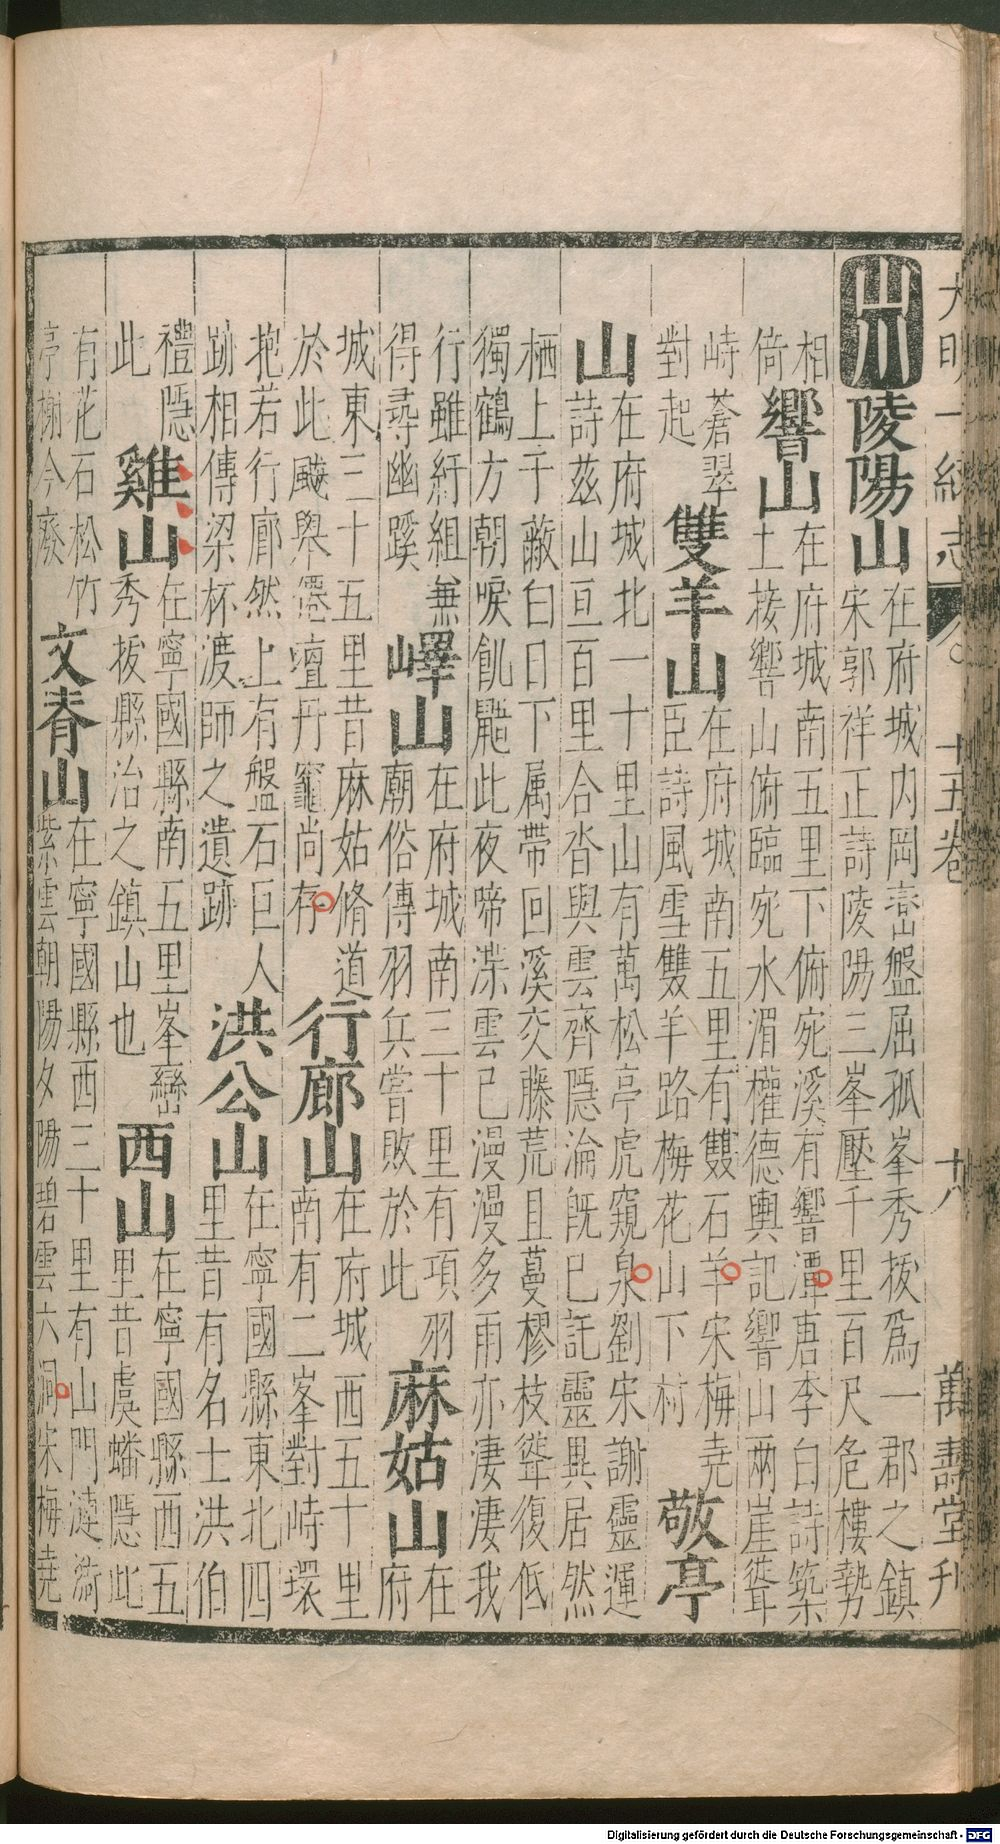 大明一統志 十五卷 十八 萬壽堂刊
山川 陵陽山 在府城内岡巒盤屈孤峯秀拔爲一郡之鎮
宋郭祥正詩陵陽三峯壓千里百尺危樓勢
相
倚
響山 在府城南五里下俯宛溪有響潭唐李白詩築
土接響山俯臨宛水湄權德輿記響山兩崖聳
峙蒼翠
對起
雙羊山 在府城南五里有雙石羊宋梅堯
臣詩風雪雙羊路梅花山下村
敬亭
山 在府城北一十里山有萬松亭虎窺泉劉宋謝靈運
詩茲山亘百里合沓與雲齊隱淪既已託靈異居然
栖上干蔽白日下属帶回溪交藤荒且蔓樛枝聳復低
獨鶴方朝唳飢鼯此夜啼渫雲已漫漫多雨亦凄凄我
行雖紆組兼
得尋幽蹊
嶧山 在府城南三十里有項羽
廟俗傳羽兵嘗敗於此
麻姑山 在
府
城東三十五里昔麻姑脩道
於此飈舉僊壇丹竈尚存
行廊山 在府城西五十里
南有二峯對峙環
抱若行廊然上有盤石巨人
跡相傳梁杯渡師之遺跡
洪公山 在寧國縣東北四
里昔有名士洪伯
禮隱
此
雞山 在寧國縣南五里峯巒
秀拔縣治之鎮山也
西山 在寧國縣西五
里昔虞蟠隱此
有花石松竹
亭榭今廢
文脊山 在寧國縣西三十里有山門漣漪
紫雲朝陽夕陽碧雲六洞宋梅堯
Digitalisierung gefördert durch die Deutsche Forschungsgemeinschaft - DFG